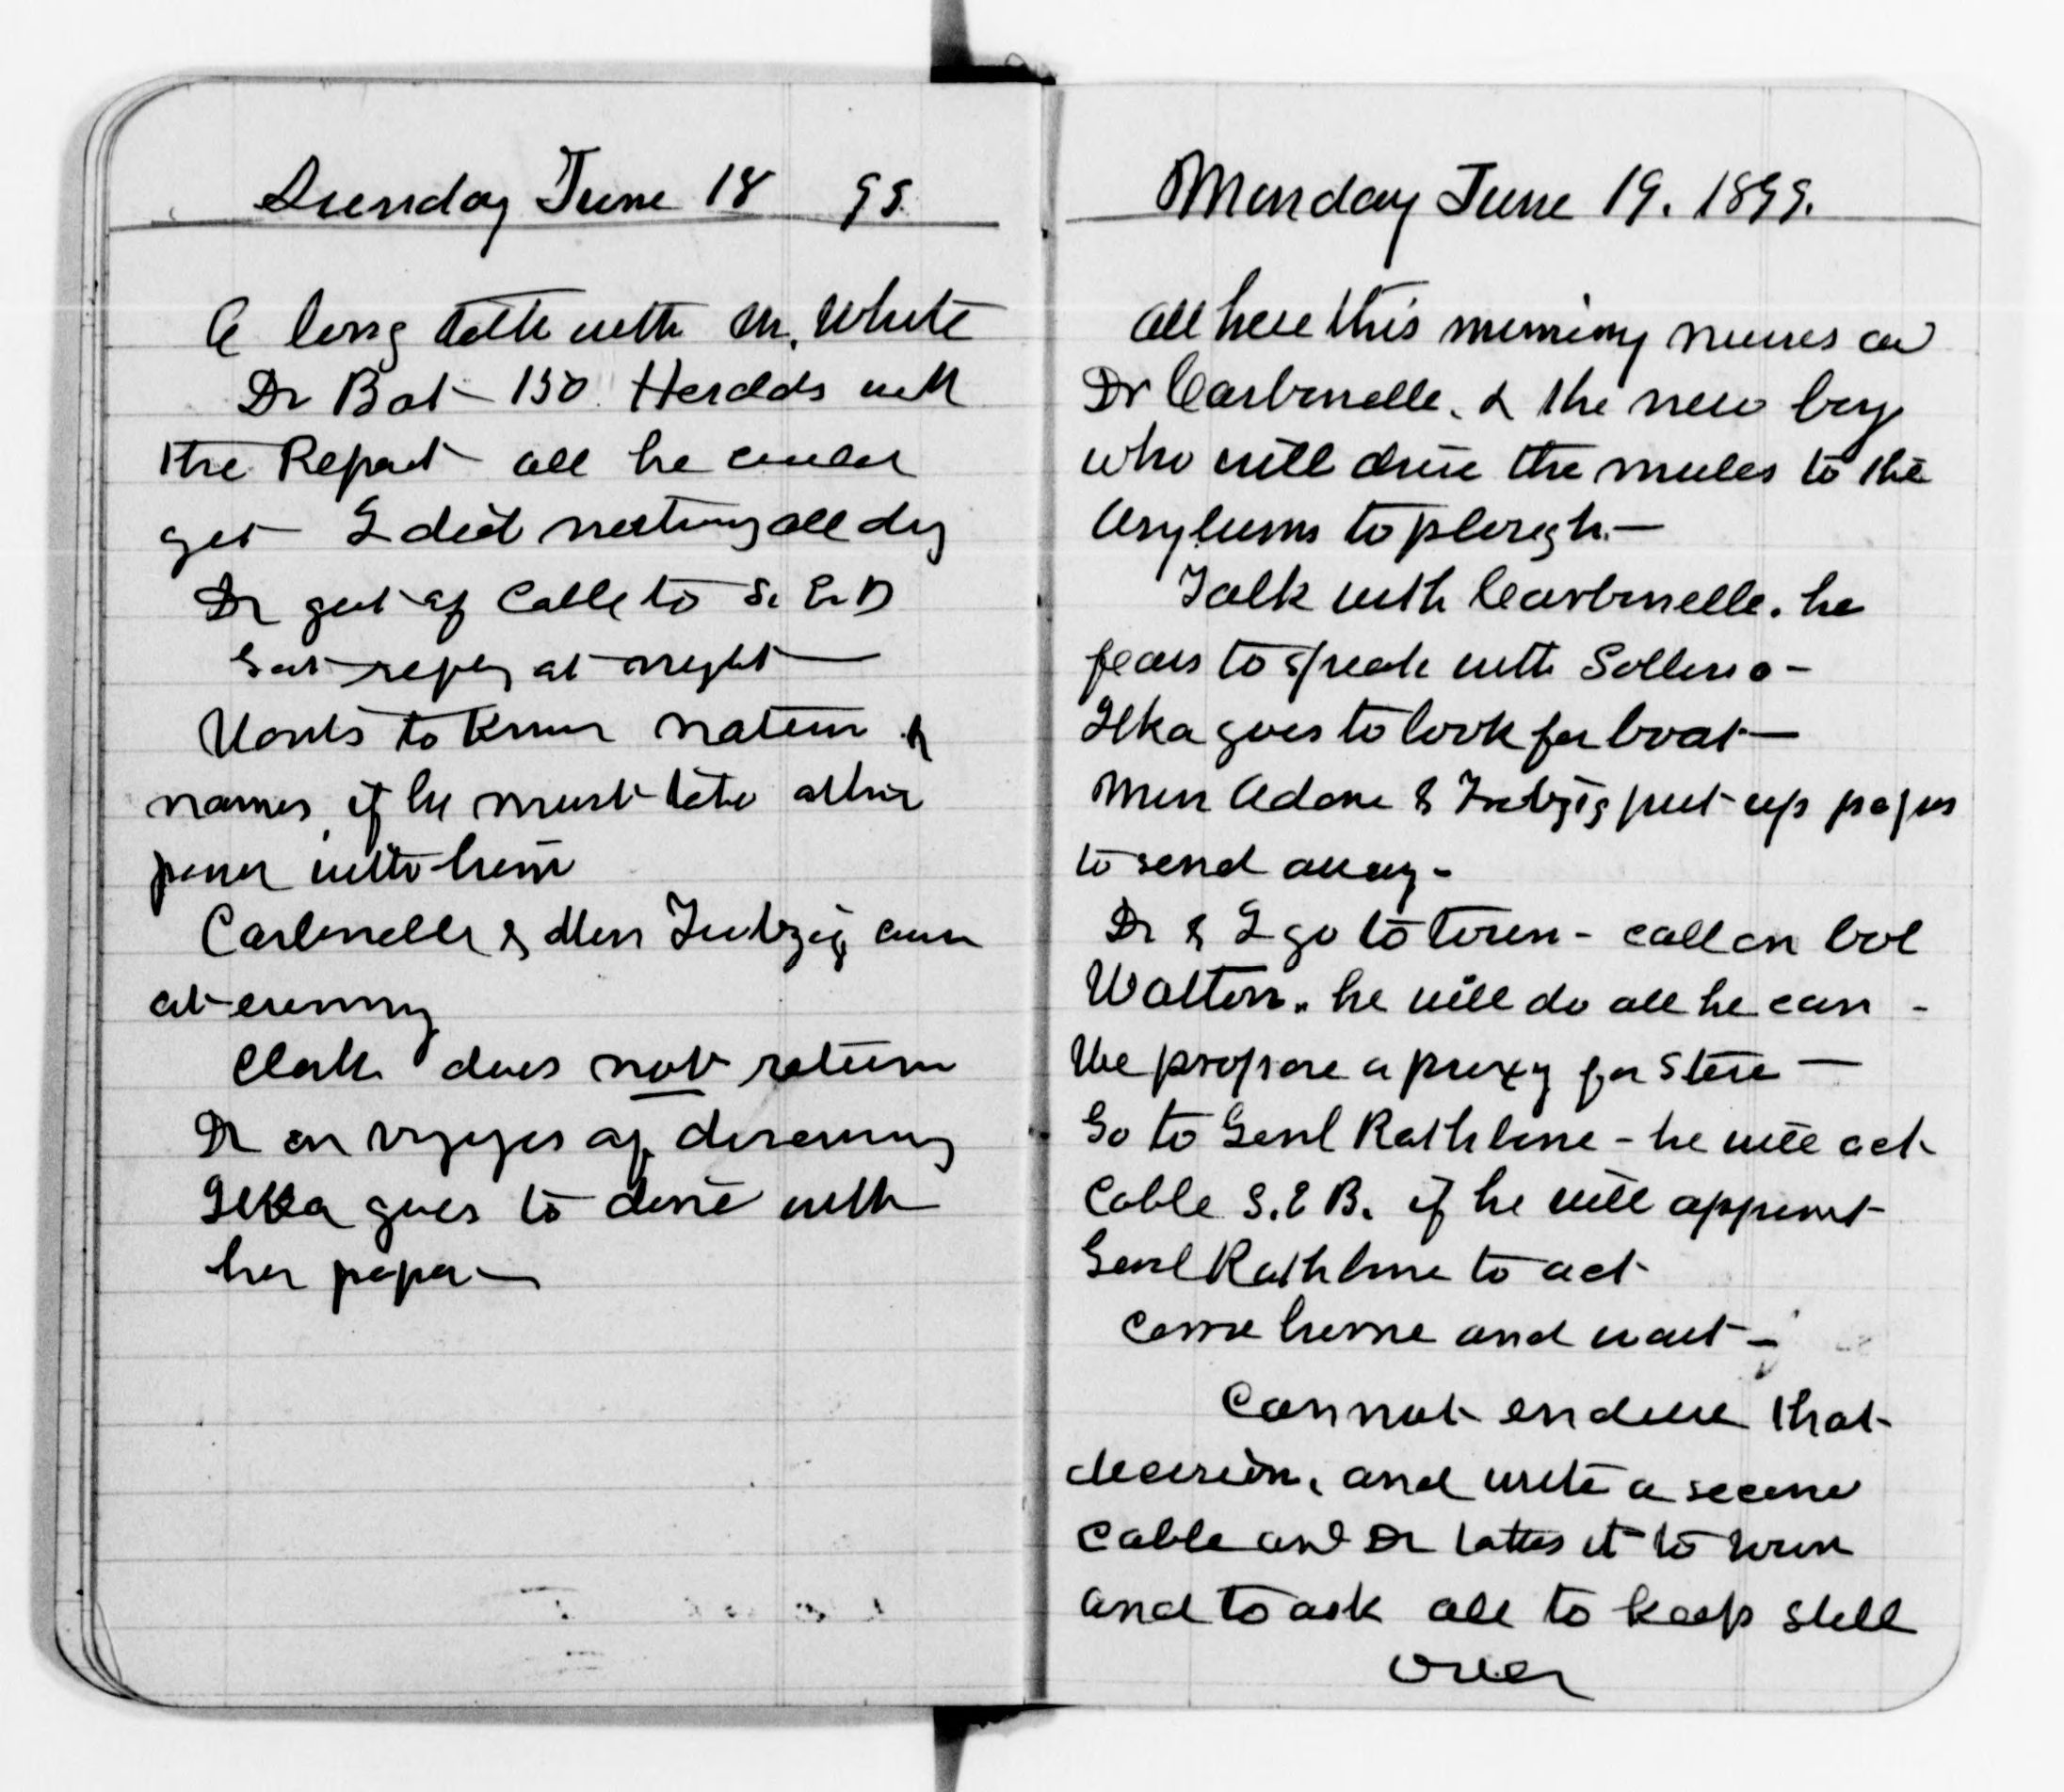 Sunday June 18 99.
A long talk with Mr. White
Dr Bot 150 Heralds with
the Report all he could
get I did nothing all day
Dr got of Cable to S. E. B
Got reply at night —
Wants to know nature &
names, if he must take other
power with him
Carbonelle & Miss Fretzig came
at evening
Clark does not return
Dr on voyages of discovery
Ilka goes to dine with
her papa —
Monday June 19. 1899.
All here this morning nurses and
Dr Carbonelle. & the new boy
who will drive the mules to the
Asylums to plough. —
Talk with Carbonelle. he
fears to speak with Solleso -
Ilka goes to look for boat —
Miss Adone & Fretzig put up papers
to send away -
Dr & I go to town - call on Col
Walton. he will do all he can -
We propose a proxy for Store —
Go to Genl Rathbone - he will act
Cable S. E B. if he will appoint
Genl Rathbone to act
Come home and wait -
Cannot endure that
decision, and write a second
Cable and Dr takes it to town
and to ask all to keep still
over